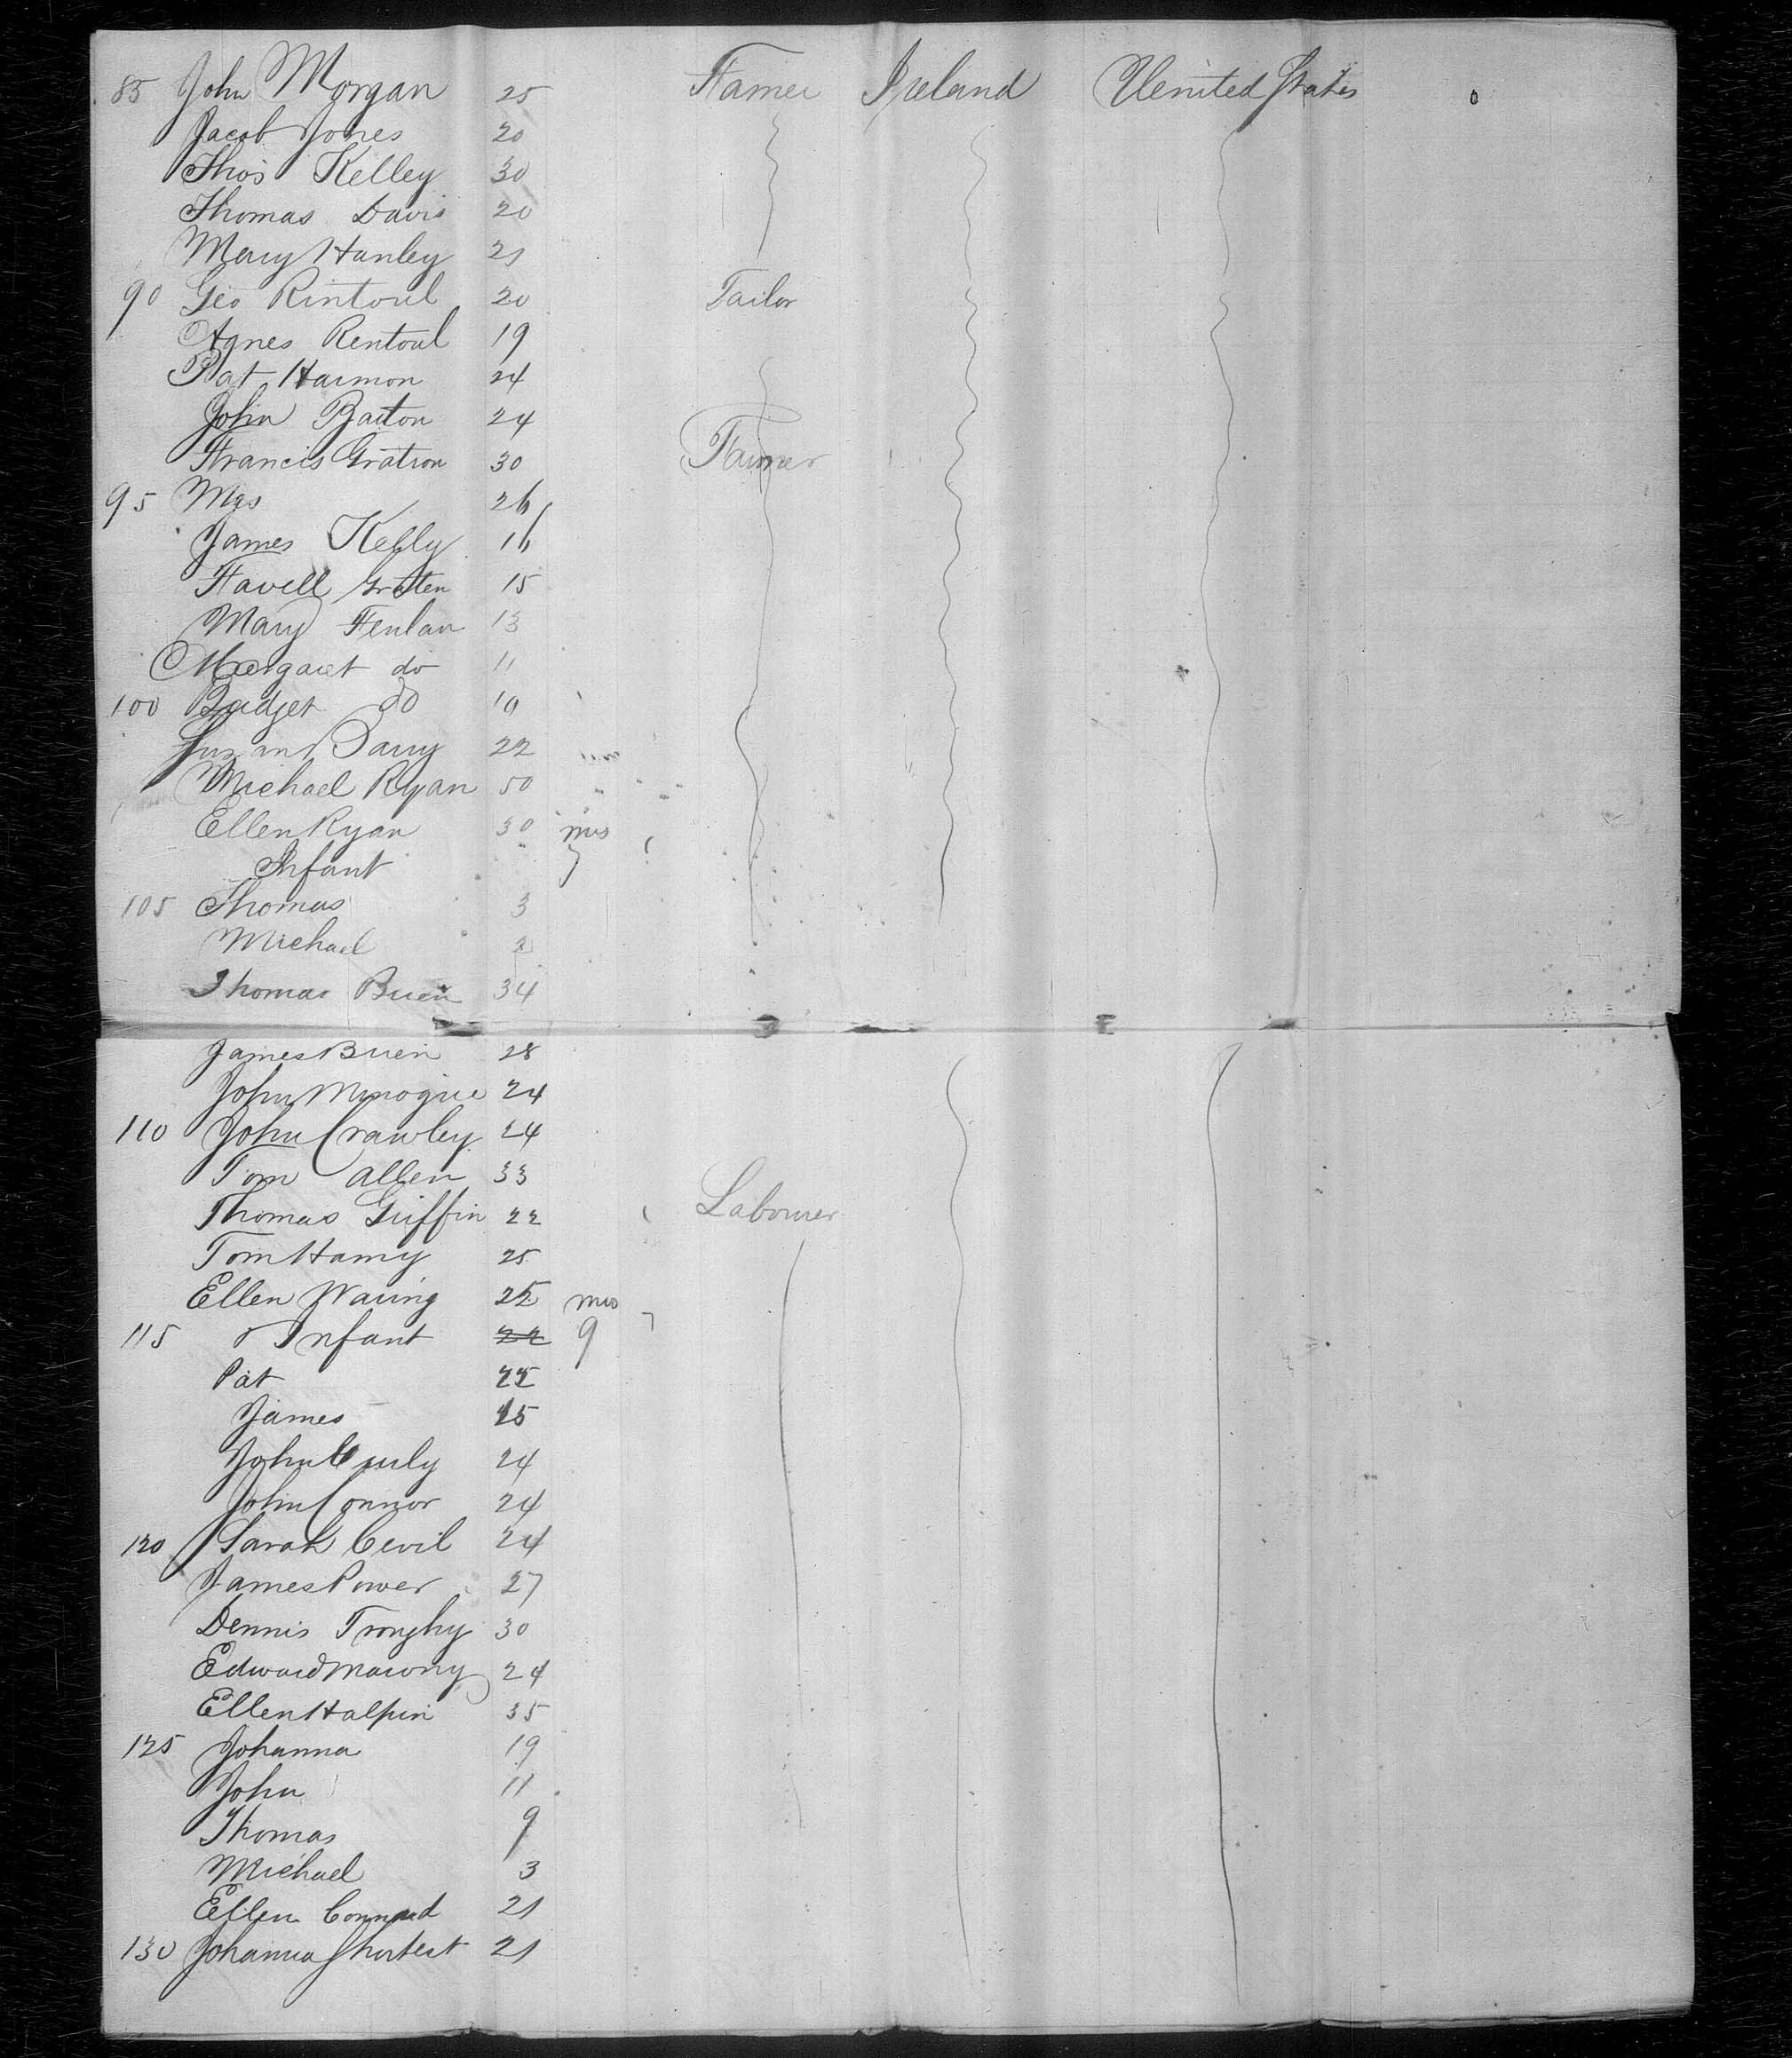 85 John Morgan 25 Farmer Ireland United States 0
Jacob Jones 20
Thos Kelley 30
Thomas Davis 20
Mary Hanley 21
90 Geo Rintoul 20 Tailor
Agnes Rentoul 19
Pat Harmon 24
John Barton 24
Francis Gratron 30 Farmer
95 Mrs 26
James Kelly 16
Havell Gratten 15
Mary Fenlan 13
Margaret do 11
100 Bridget do 10
Barry 22
Michael Ryan 50
Ellen Ryan 30 mos
Infant 7
105 Thomas 3
Michael 2
Thomas Buen 34
James Buen 28
John Minogue 24
110 John Crawley 24
Tom Allen 33
Thomas Griffin 22 Labourer
Tom Harny 25
Ellen Waring 25 mos
115 Infant 22 9
Pat 25
James 15
John Curly 24
John Connor 24
120 Sarah Cevil 24
James Power 27
Dennis Troughy 30
Edward Mawny 24
Ellen Halpin 35
125 Johanna 19
John 11
Thomas 9
Michael 3
Ellen 21
130 Johanna Shortest 21